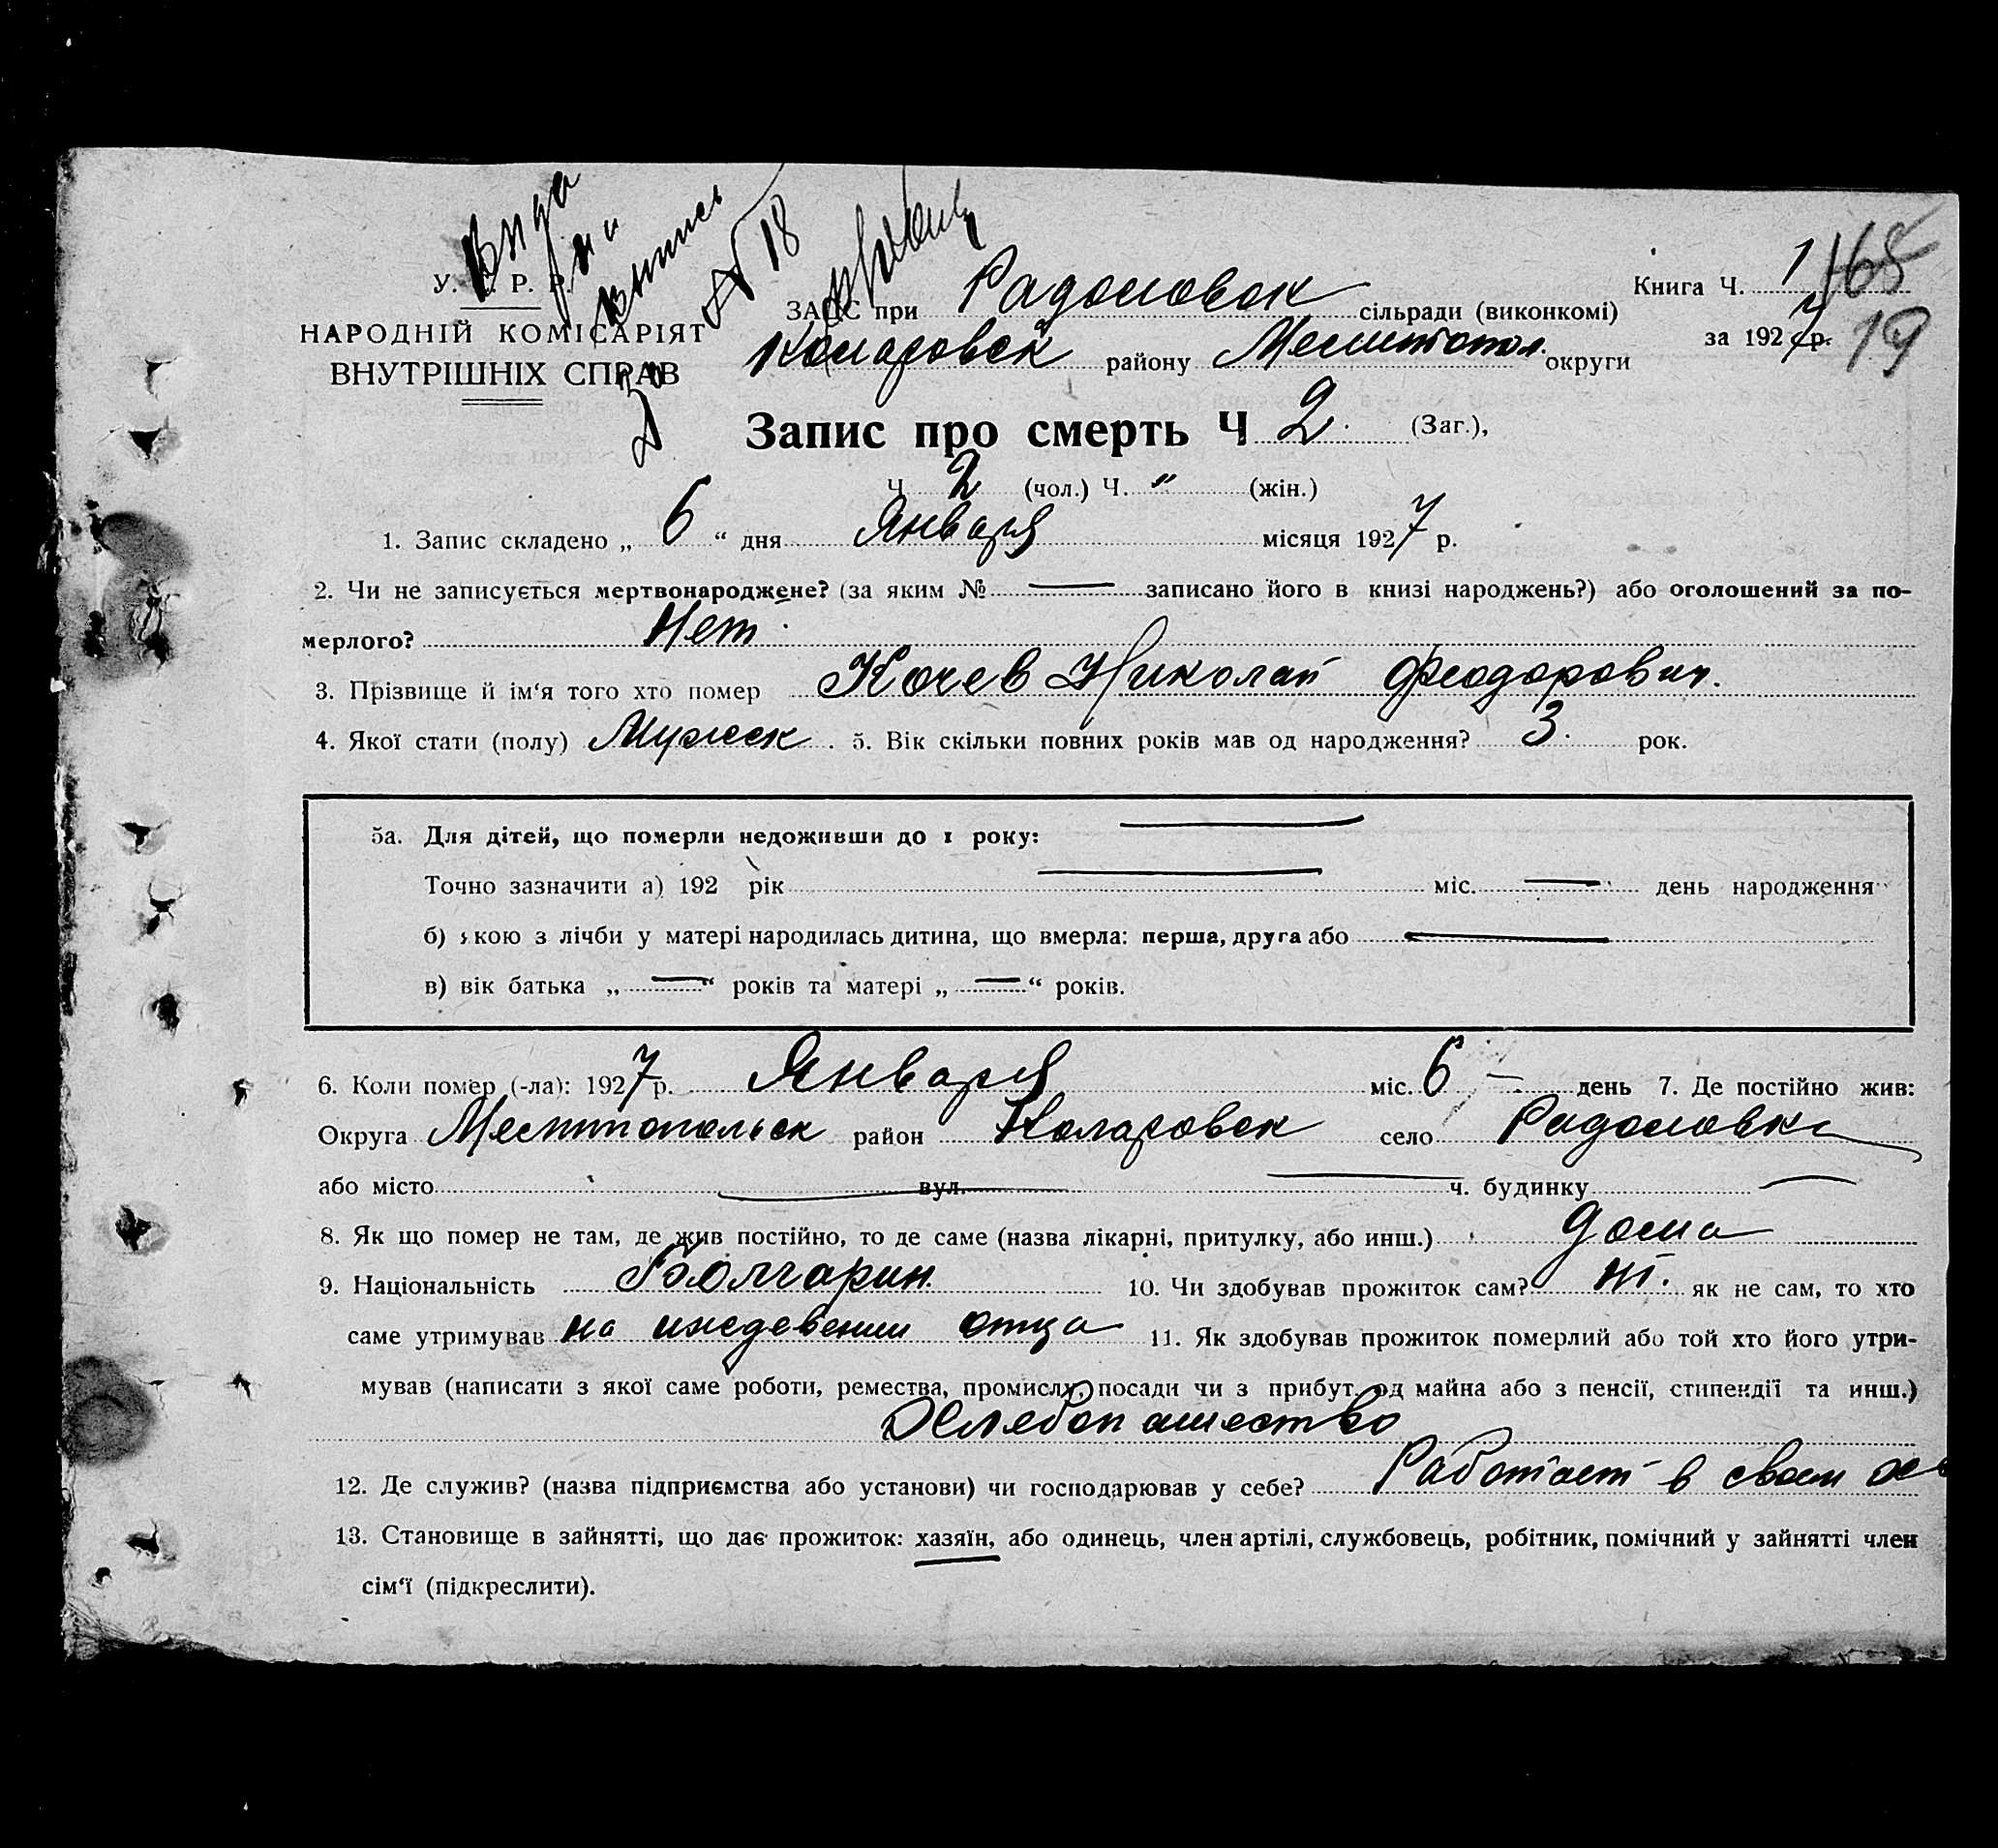 Вида
на
выпись
№ 18
У. С. Р. Р.
НАРОДНІЙ КОМІСАРІЯТ
ВНУТРІШНІХ СПРАВ
Книга Ч. 1 168
ЗАГС при Радоловск сільради (виконкомі)
за 1927 р. 19
Коларовск району Мелитопол. округи
Запис про смерть Ч 2. (Заг.),
Ч 2 (чол.) Ч. " (жін.)
1. Запис складено „ 6 “ дня Января місяця 1927 р.
2. Чи не записується мертвонароджене? (за яким № — записано його в книзі народжень?) або оголошений за по-
мерлого? Нет
3. Прізвище й ім‘я того хто помер Кочев Николай Феодорович.
4. Якої стати (полу) Мужск. 5. Вік скільки повних років мав од народження? 3. рок.
5а. Для дітей, що померли недоживши до 1 року: —
Точно зазначити а) 192 рік — міс. — день народження
б) якою з лічби у матері народилась дитина, що вмерла: перша, друга або —
в) вік батька „ — “ років та матері „ — “ років.
6. Коли помер (-ла): 1927 р. Января міс. 6 — день 7. Де постійно жив:
Округа Мелитопольск район Коларовск село Радоловка
або місто — вул. — ч. будинку —
8. Як що помер не там, де жив постійно, то де саме (назва лікарні, притулку, або инш.) дома
9. Національність Болгарин. 10. Чи здобував прожиток сам? нт. як не сам, то хто
саме утримував на иждевении отца 11. Як здобував прожиток померлий або той хто його утри-
мував (написати з якої саме роботи, ремества, промислу, посади чи з прибут. од майна або з пенсії, стипендії та инш.)
Хлебопашество
12. Де служив? (назва підприємства або установи) чи господарював у себе? Работает в своем хо
13. Становище в зайнятті, що дає прожиток: хазяїн, або одинець, член артілі, службовець, робітник, помічний у зайнятті член
сім‘ї (підкреслити).